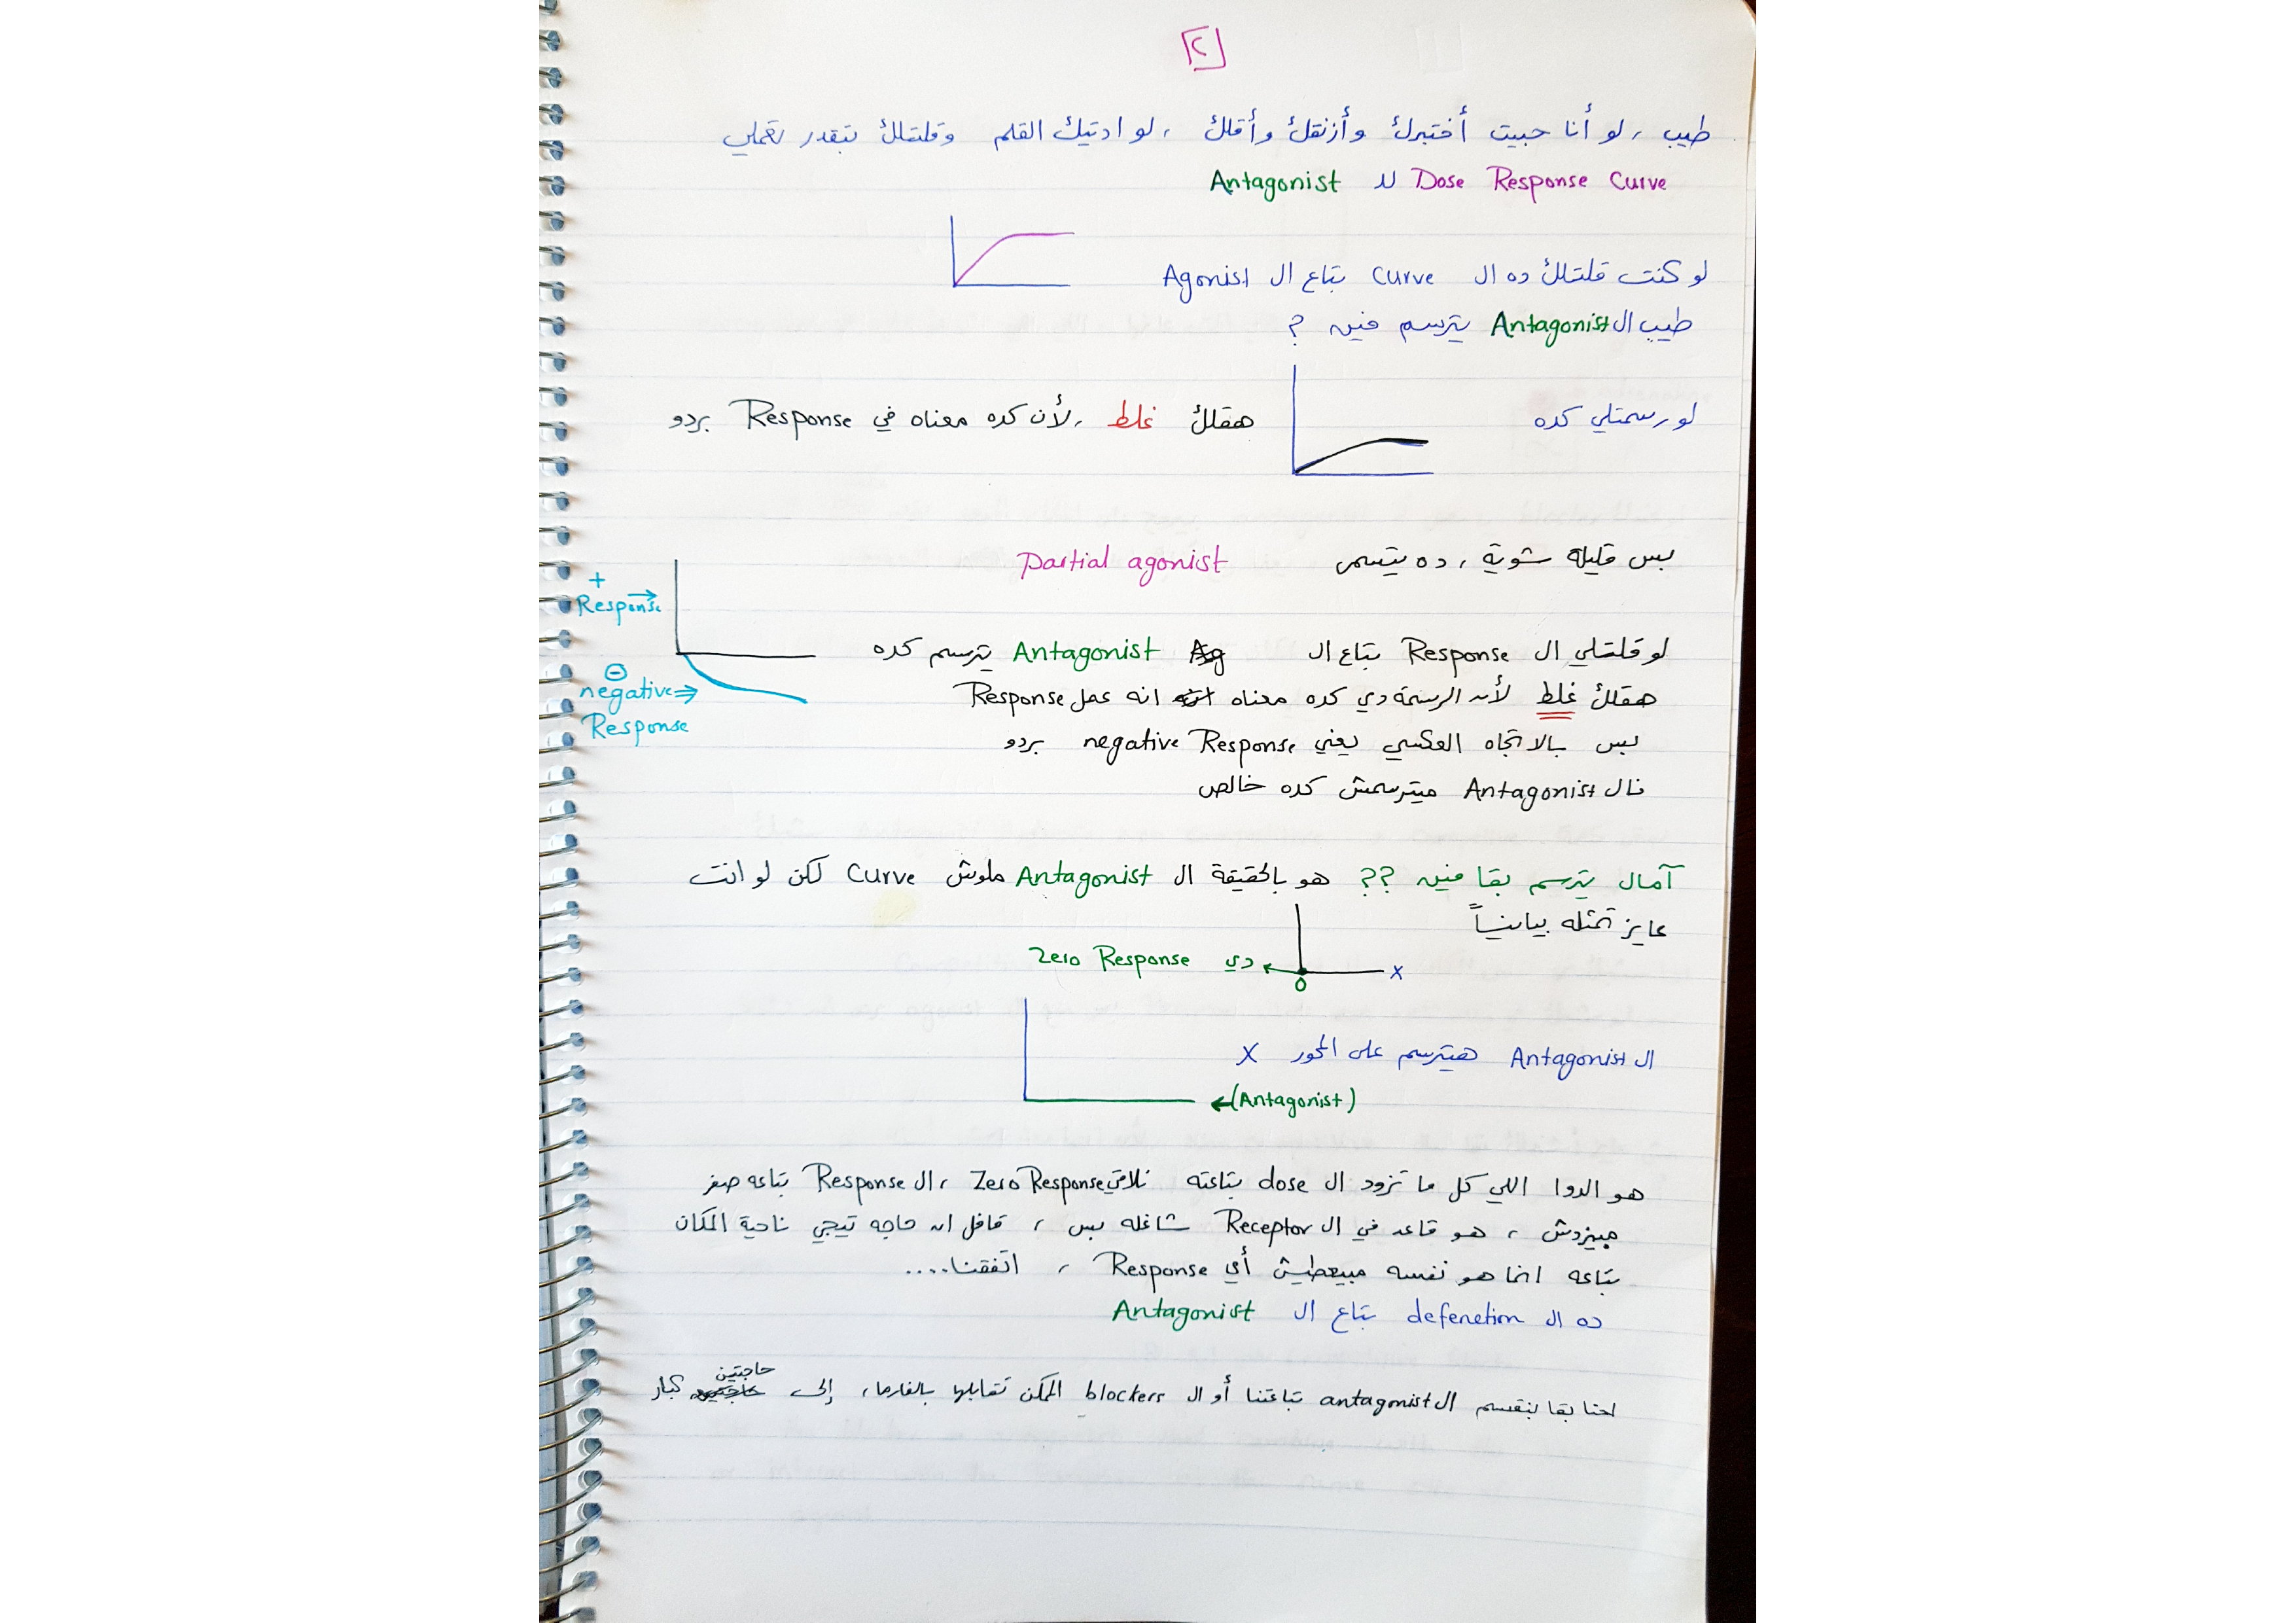 ٢
طيب ، لو أنا حبيت أختبرك وأزنقك وأقلك ، لو اديتك القلم وقلتلك تبقدر تعملي
Dose Response Curve لل Antagonist
لو كنت قلتلك ده ال Curve بتاع ال Agonist
طيب ال Antagonist يترسم فين ?
لو رسمتلي كده
هقلك غلط ، لأن كده معناه في Response بردو
بس قليلة شوية ، ده يتسمى Partial agonist
+
Response
لو قلتلي ال Response بتاع ال Antagonist يترسم كده
negative
Response
هقلك غلط لأن الرسمة دي كده معناه انه عمل Response
بس بالاتجاه العكسي يعني negative Response بردو
فال Antagonist ميترسمش كده خالص
آمال يترسم بقا فين ?? هو بالحقيقة ال Antagonist ملوش Curve لكن لو انت
عايز تمثله بيانياً
X
0
دي Zero Response
ال Antagonist هيترسم على المحور X
(Antagonist)
هو الدوا اللي كل ما تزود ال dose بتاعته تلاقي Zero Response ، ال Response بتاعه صفر
مبيزدش ، هو قاعد في ال Receptor شاغله بس ، قافل ان حاجه تيجي ناحية المكان
بتاعه انما هو نفسه مبيعطيش أي Response ، اتفقنا....
ده ال defenetion بتاع ال Antagonist
احنا بقا بنقسم ال antagonist بتاعتنا أو ال blockers الممكن تقابلها بالفارما ، إلى حاجتين كبار